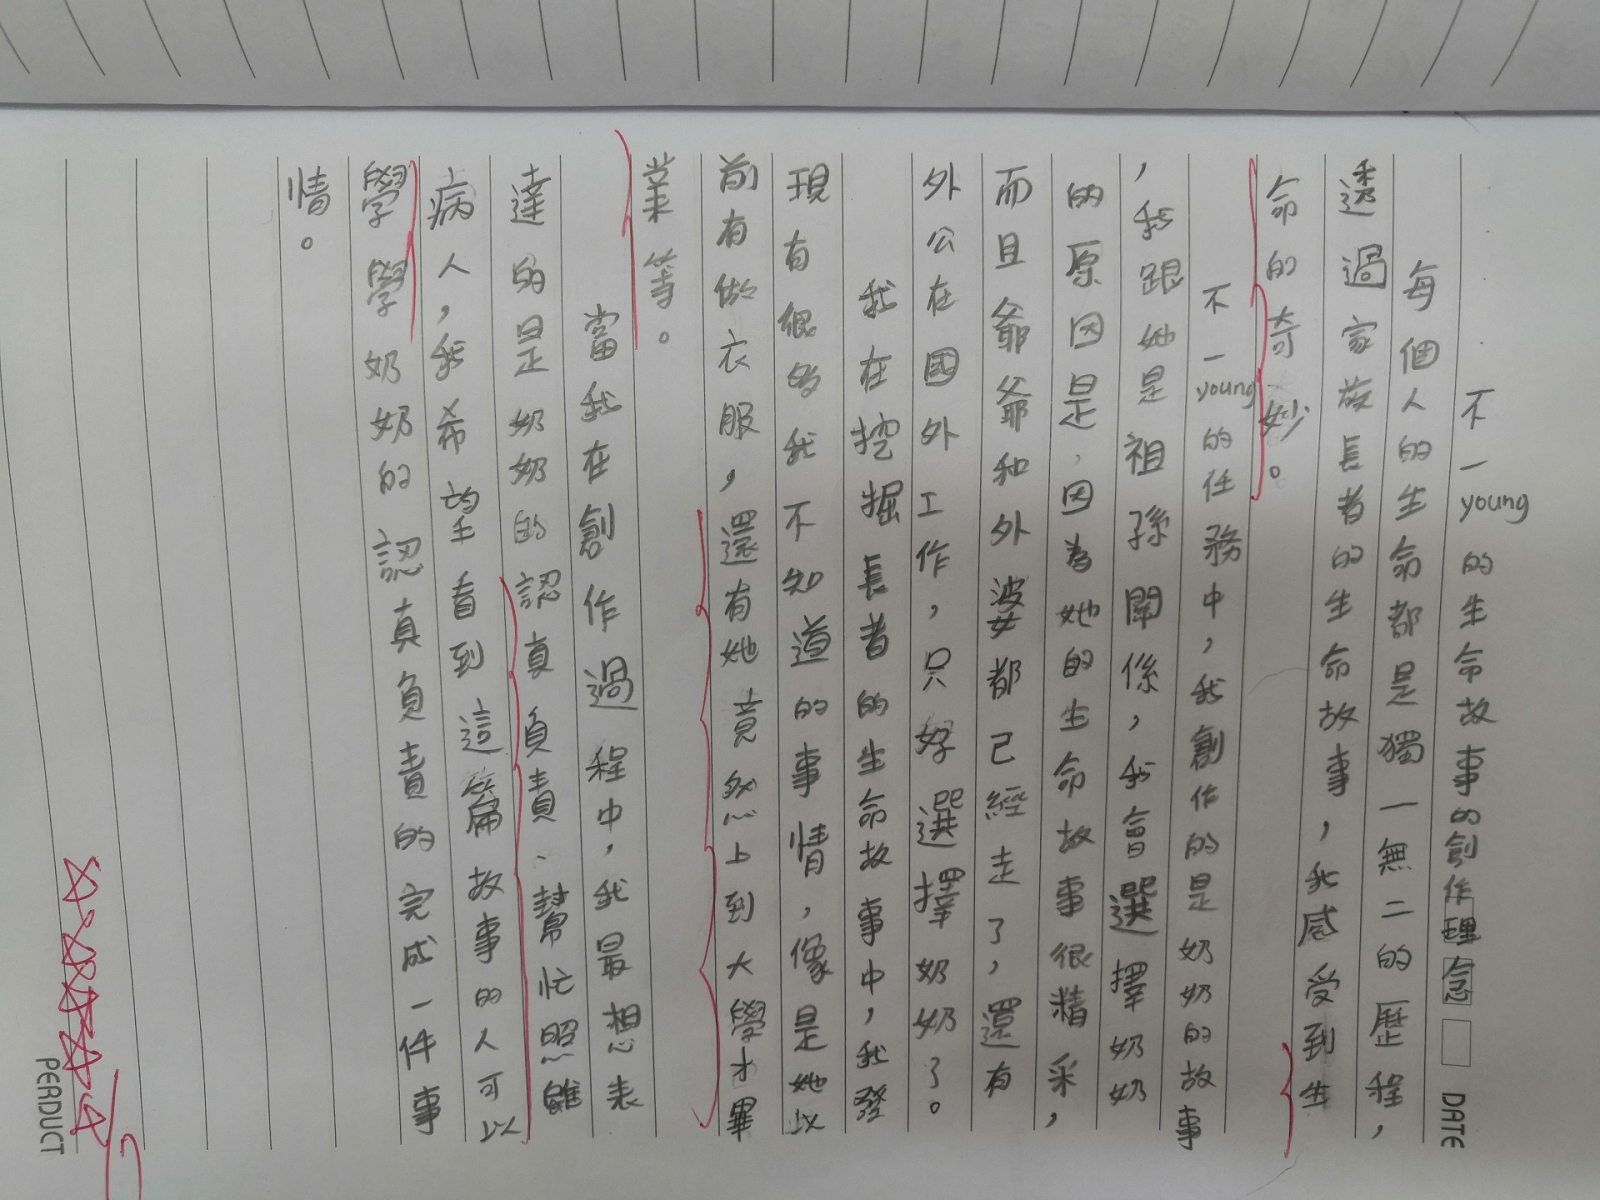 不一young的生命故事的創作理念
每個人的生命都是獨一無二的歷程，
透過家族長者的生命故事，我感受到生
命的奇妙。
不一young的任務中，我創作的是奶奶的故事
，我跟她是祖孫關係，我會選擇奶奶
的原因是，因為她的生命故事很精采，
而且爺爺和外婆都已經走了，還有
外公在國外工作，只好選擇奶奶了。
我在挖掘長者的生命故事中，我發
現有很多我不知道的事情，像是她以
前有做衣服，還有她竟然上到大學才畢
業等。
當我在創作過程中，我最想表
達的是奶奶的認真負責、幫忙照顧
病人，我希望看到這篇故事的人可以
學學奶奶的認真負責的完成一件事
情。
DATE
PERDUCT